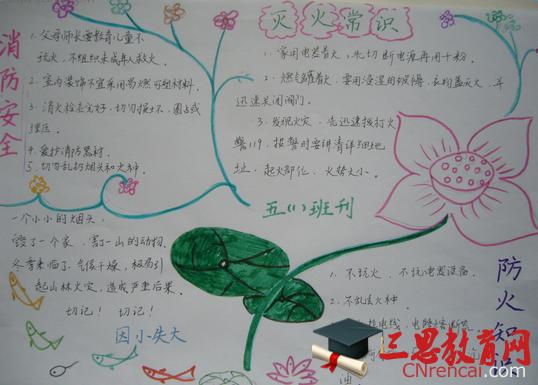 消防安全
1. 父母师长要教育儿童不
玩火,不组织未成年人救火.
2. 室内装饰不宜采用易燃可塑材料.
3. 消火栓关完好,切勿损坏、圈占或
埋压.
4. 爱护消防器材.
5. 切勿乱扔烟头和火种.
灭火常识
1. 家用电器着火,先切断电源再用干粉.
2. 燃气罐着火,要用浸湿的被褥、衣物盖灭火,并
迅速关闭阀门.
3. 发现火灾,先迅速拨打火
警119,报警时要讲清详细地
址、起火部位、火势大小.
五(1)班刊
一个小小的烟头,
毁了一个家,害了一山的动物,
冬季来临了,气候干燥,极易引
起山林火灾,造成严重后果.
切记! 切记!
因小失大
防火知识
1. 不玩火,不玩电器设备.
2. 不乱丢火种
电线,电路
三思教育网
CNrencai.com